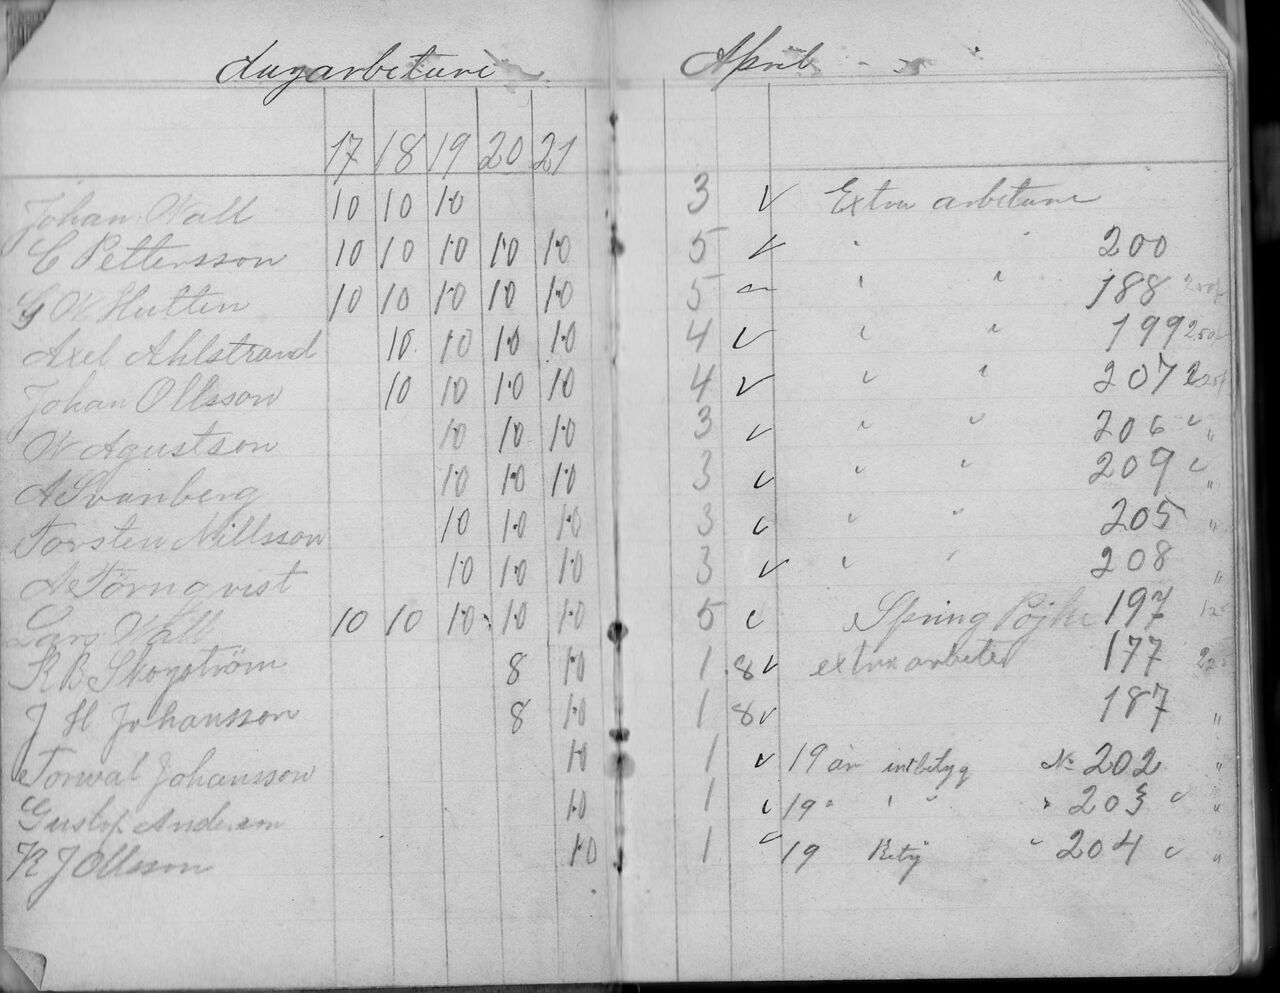 Dagarbetare April
17 18 19 20 21
Johan Wall 10 10 10 3 v Extra arbetare
C Pettersson 10 10 10 10 10 5 v " " 200
G W Hultin 10 10 10 10 10 5 " " 188 250
Axel Ahlstrand 10 10 10 10 4 v " " 199 250
Johan Ollsson 10 10 10 10 4 v " " 207 225
W Agustson 10 10 10 3 v " " 206 " "
A Svanberg 10 10 10 3 v " " 209 " "
Torsten Nillsson 10 10 10 3 v " " 205 "
A Törnqvist 10 10 10 3 v " " 208 "
Lars Wall 10 10 10 10 10 5 v Spring Pojke 197
K B Skogström 8 10 1.8 v extra arbeter 177 225
J H Johansson 8 10 1 8 v 187 "
Torwal Johansson 10 1 v 19 år intbetyg No 202 "
Gustof Anderson 10 1 v 19 " " " " 203 " "
K J Ollsson 10 1 v 19 Betyg " 204 " "